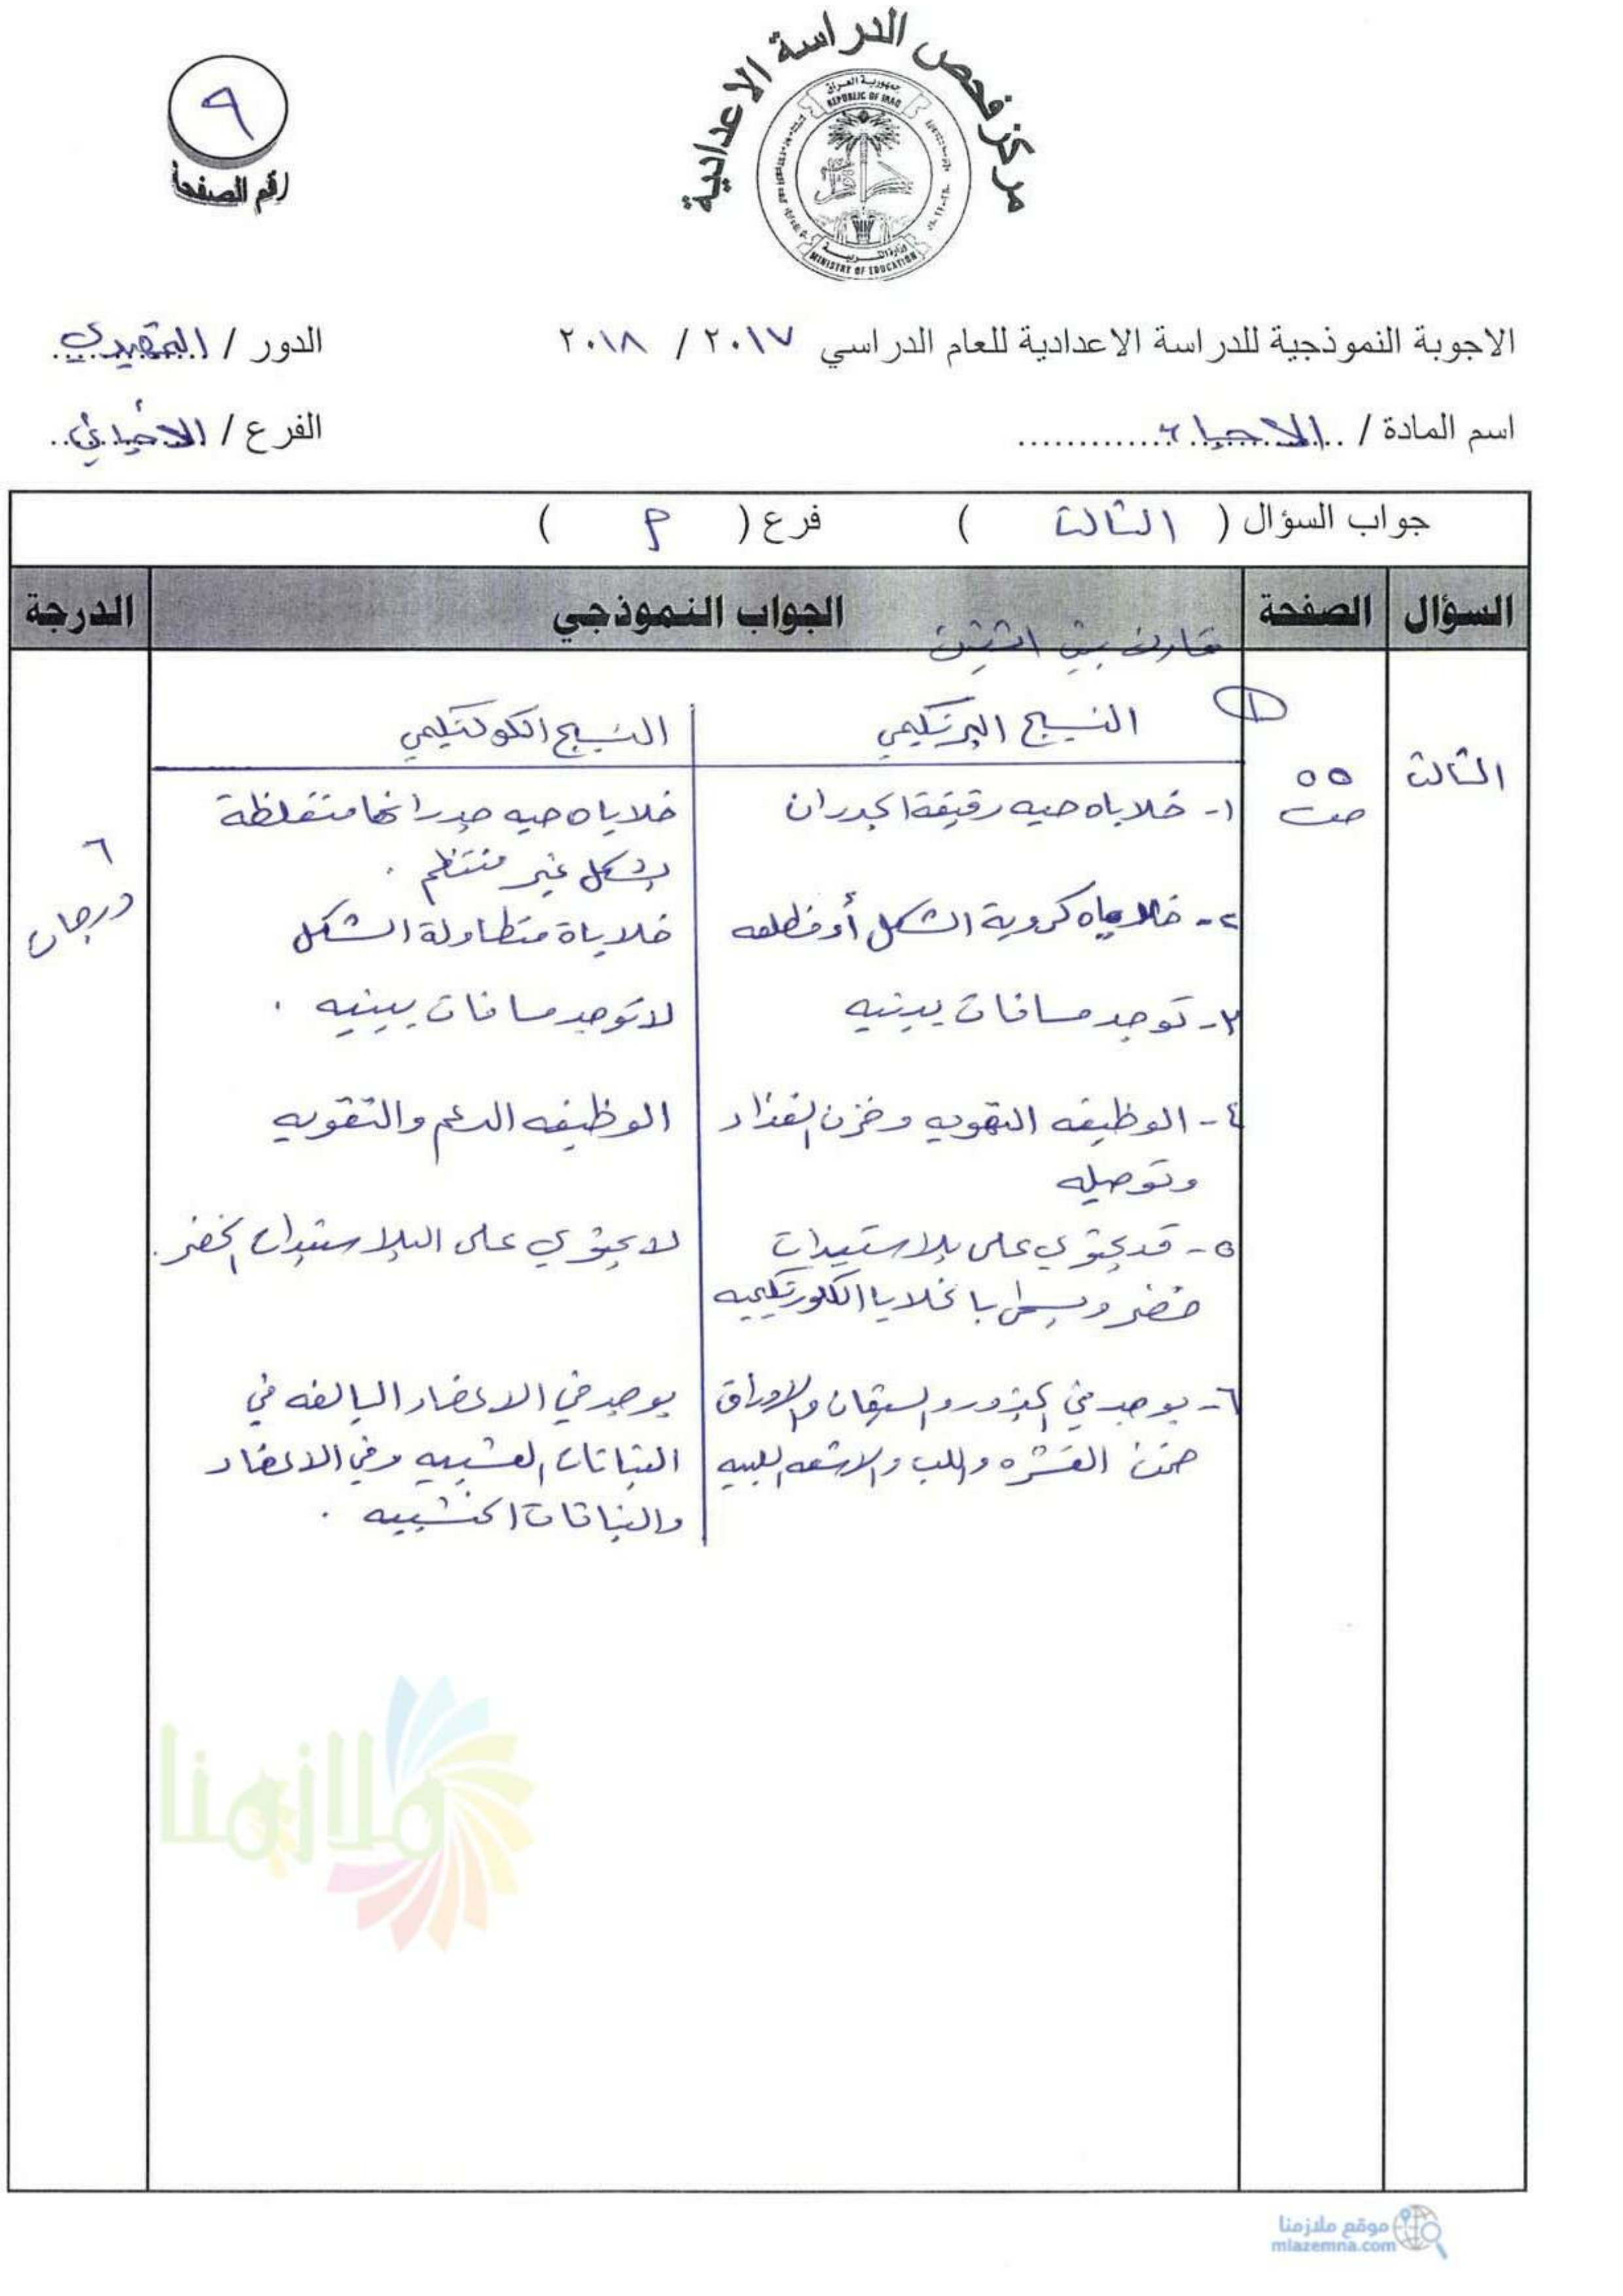 مركز فحص الدراسة الاعدادية
جمهورية العراق
REPUBLIC OF IRAQ
وزارة التربية
MINISTRY OF EDUCATION
٩
رقم الصفحة
الاجوبة النموذجية للدراسة الاعدادية للعام الدراسي ٢٠١٧ / ٢٠١٨
الدور / التمهيدي
اسم المادة / الاحياء
الفرع / الأحيائي
جواب السؤال ( الثالث ) فرع ( م )
السؤال الصفحة الجواب النموذجي الدرجة
قارن بين اثنين
١
النسيج البرنكيمي النسيج الكولنكيمي
الثالث
٥٥
ص
١- خلاياه حيه رقيقة الجدران
خلاياه حيه جدرانها متغلظة
بشكل غير منتظم .
٦
درجات
٢- خلاياه كروية الشكل أو مضلعه
خلاياة متطاولة الشكل
٣- توجد مسافات بينيه
لا توجد مسافات بينيه .
٤- الوظيفه التهويه وخزن الغذاء
وتوصيله
الوظيفه الدعم والتقويه
٥- قد يحتوي على بلاستيدات
خضر ويسمى بالخلايا الكلورنكيميه
لا يحتوي على البلاستيدات الخضر .
٦- يوجد في الجذور والسيقان والاوراق
ضمن القشره واللب والاشعه اللبيه
يوجد في الاعضاء البالغه في
النباتات العشبيه وفي الاعضاء
والنباتات الخشبيه .
ملازمنا
موقع ملازمنا
mlazemna.com